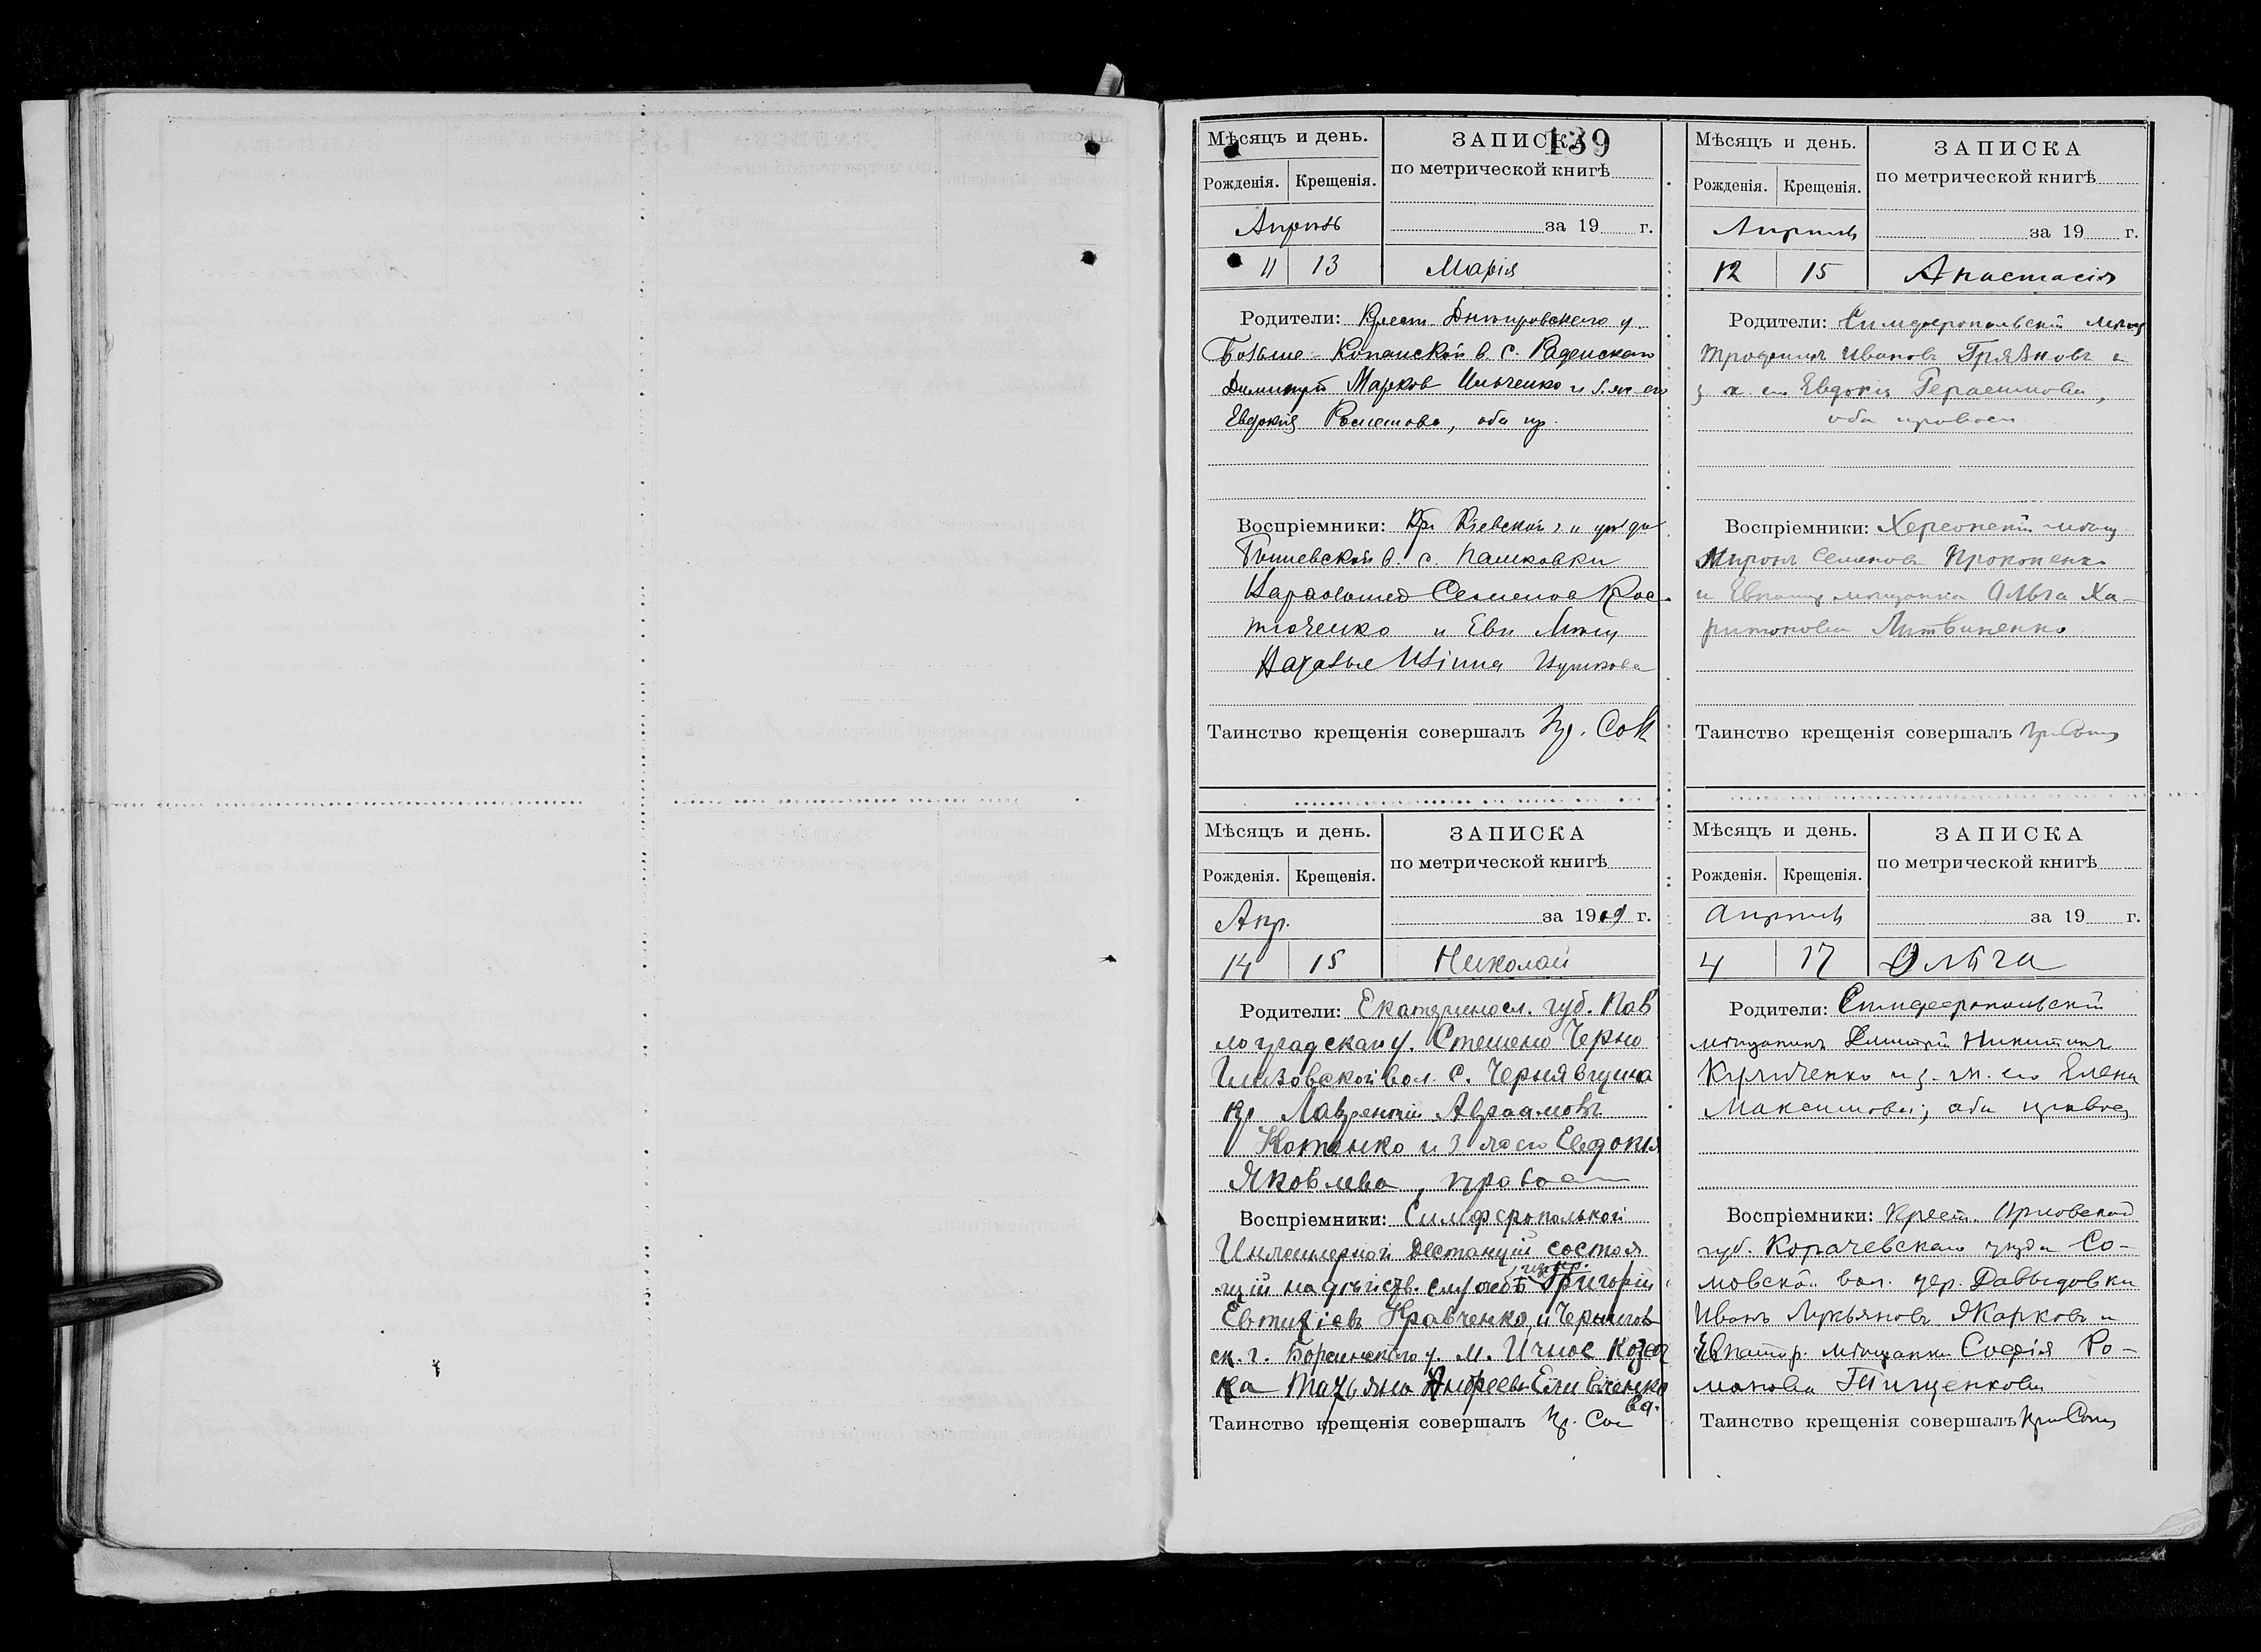 139
Мѣсяцъ и день.
Рожденія. Крещенія.
ЗАПИСКА
по метрической книгѣ
за 19 г.
Апрѣль
11 13 Марія
Родители: Крест. Днѣпровскаго у.
Больше-Копанской в. с. Раденскаго
Димитрій Марков Ильченко и з. ж. его
Евдокія, оба пр.
Воспріемники: Кр. Кіевской г. и уѣзда
в. с. Пашковки
Семенов Кос-
тюченко и Евп. мѣщ.
Таинство крещенія совершалъ пр. Сок
Мѣсяцъ и день.
Рожденія. Крещенія.
ЗАПИСКА
по метрической книгѣ
за 19 г.
Апрѣль
12 15 Анастасія
Родители: Симферопольскій мѣщ.
Трофимъ Ивановъ и
з. ж. его Евдокія Герасимова,
оба правосл.
Воспріемники: Херсонскій мѣщ.
Миронъ Семеновъ Прокопенко
и Евпатор. мѣщанка Ольга Ха-
ритонова Литвиненко
Таинство крещенія совершалъ
Мѣсяцъ и день.
Рожденія. Крещенія.
ЗАПИСКА
по метрической книгѣ
за 1909 г.
Апр.
14 15 Николай
Родители: Екатериносл. губ. Пав
лоградскаго у.
вол. с. Чернявщина
кр. Лаврентій Авраамовъ
Котенко и з. ж. его Евдокія
Яковлева, правосл.
Воспріемники: Симферопольской
Инженерной дистанціи состоя
щій на дѣйств. службѣ Григорій
Евтихіевъ Кравченко и Чернигов
ск. г. Борзенскаго у. м. Ичное козач
ка Татьяна Андреева
ва.
Таинство крещенія совершалъ пр. Сок
Мѣсяцъ и день.
Рожденія. Крещенія.
ЗАПИСКА
по метрической книгѣ
за 19 г.
Апрѣль
4 17 Ольга
Родители: Симферопольскій
мѣщанинъ Димитрій Никитинъ
Куличенко и з. ж. его Елена
Максимова, оба правос.
Воспріемники: Крест. Орловской
губ. Корачевскаго уѣзда Со-
мовской вол. дер. Давыдовки
Иванъ Лукьяновъ Жарковъ и
Евпатор. мѣщанка Софія Ро-
манова Тищенкова
Таинство крещенія совершалъ